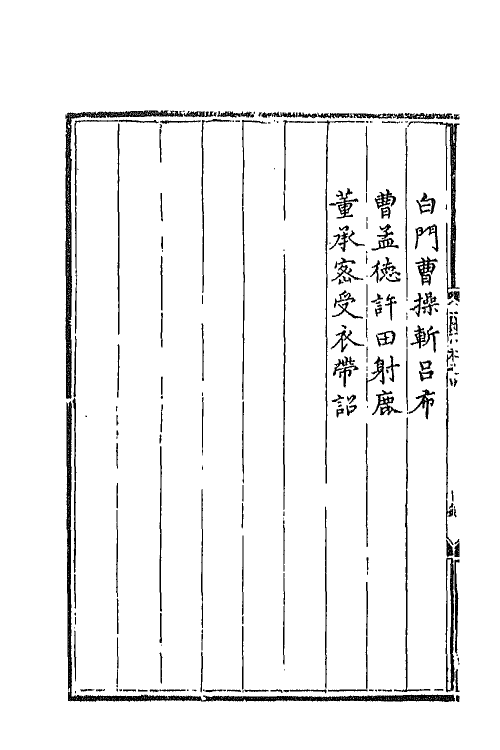 白門曹操斬呂布
曹孟徳許田射鹿
董承宻受衣帶詔